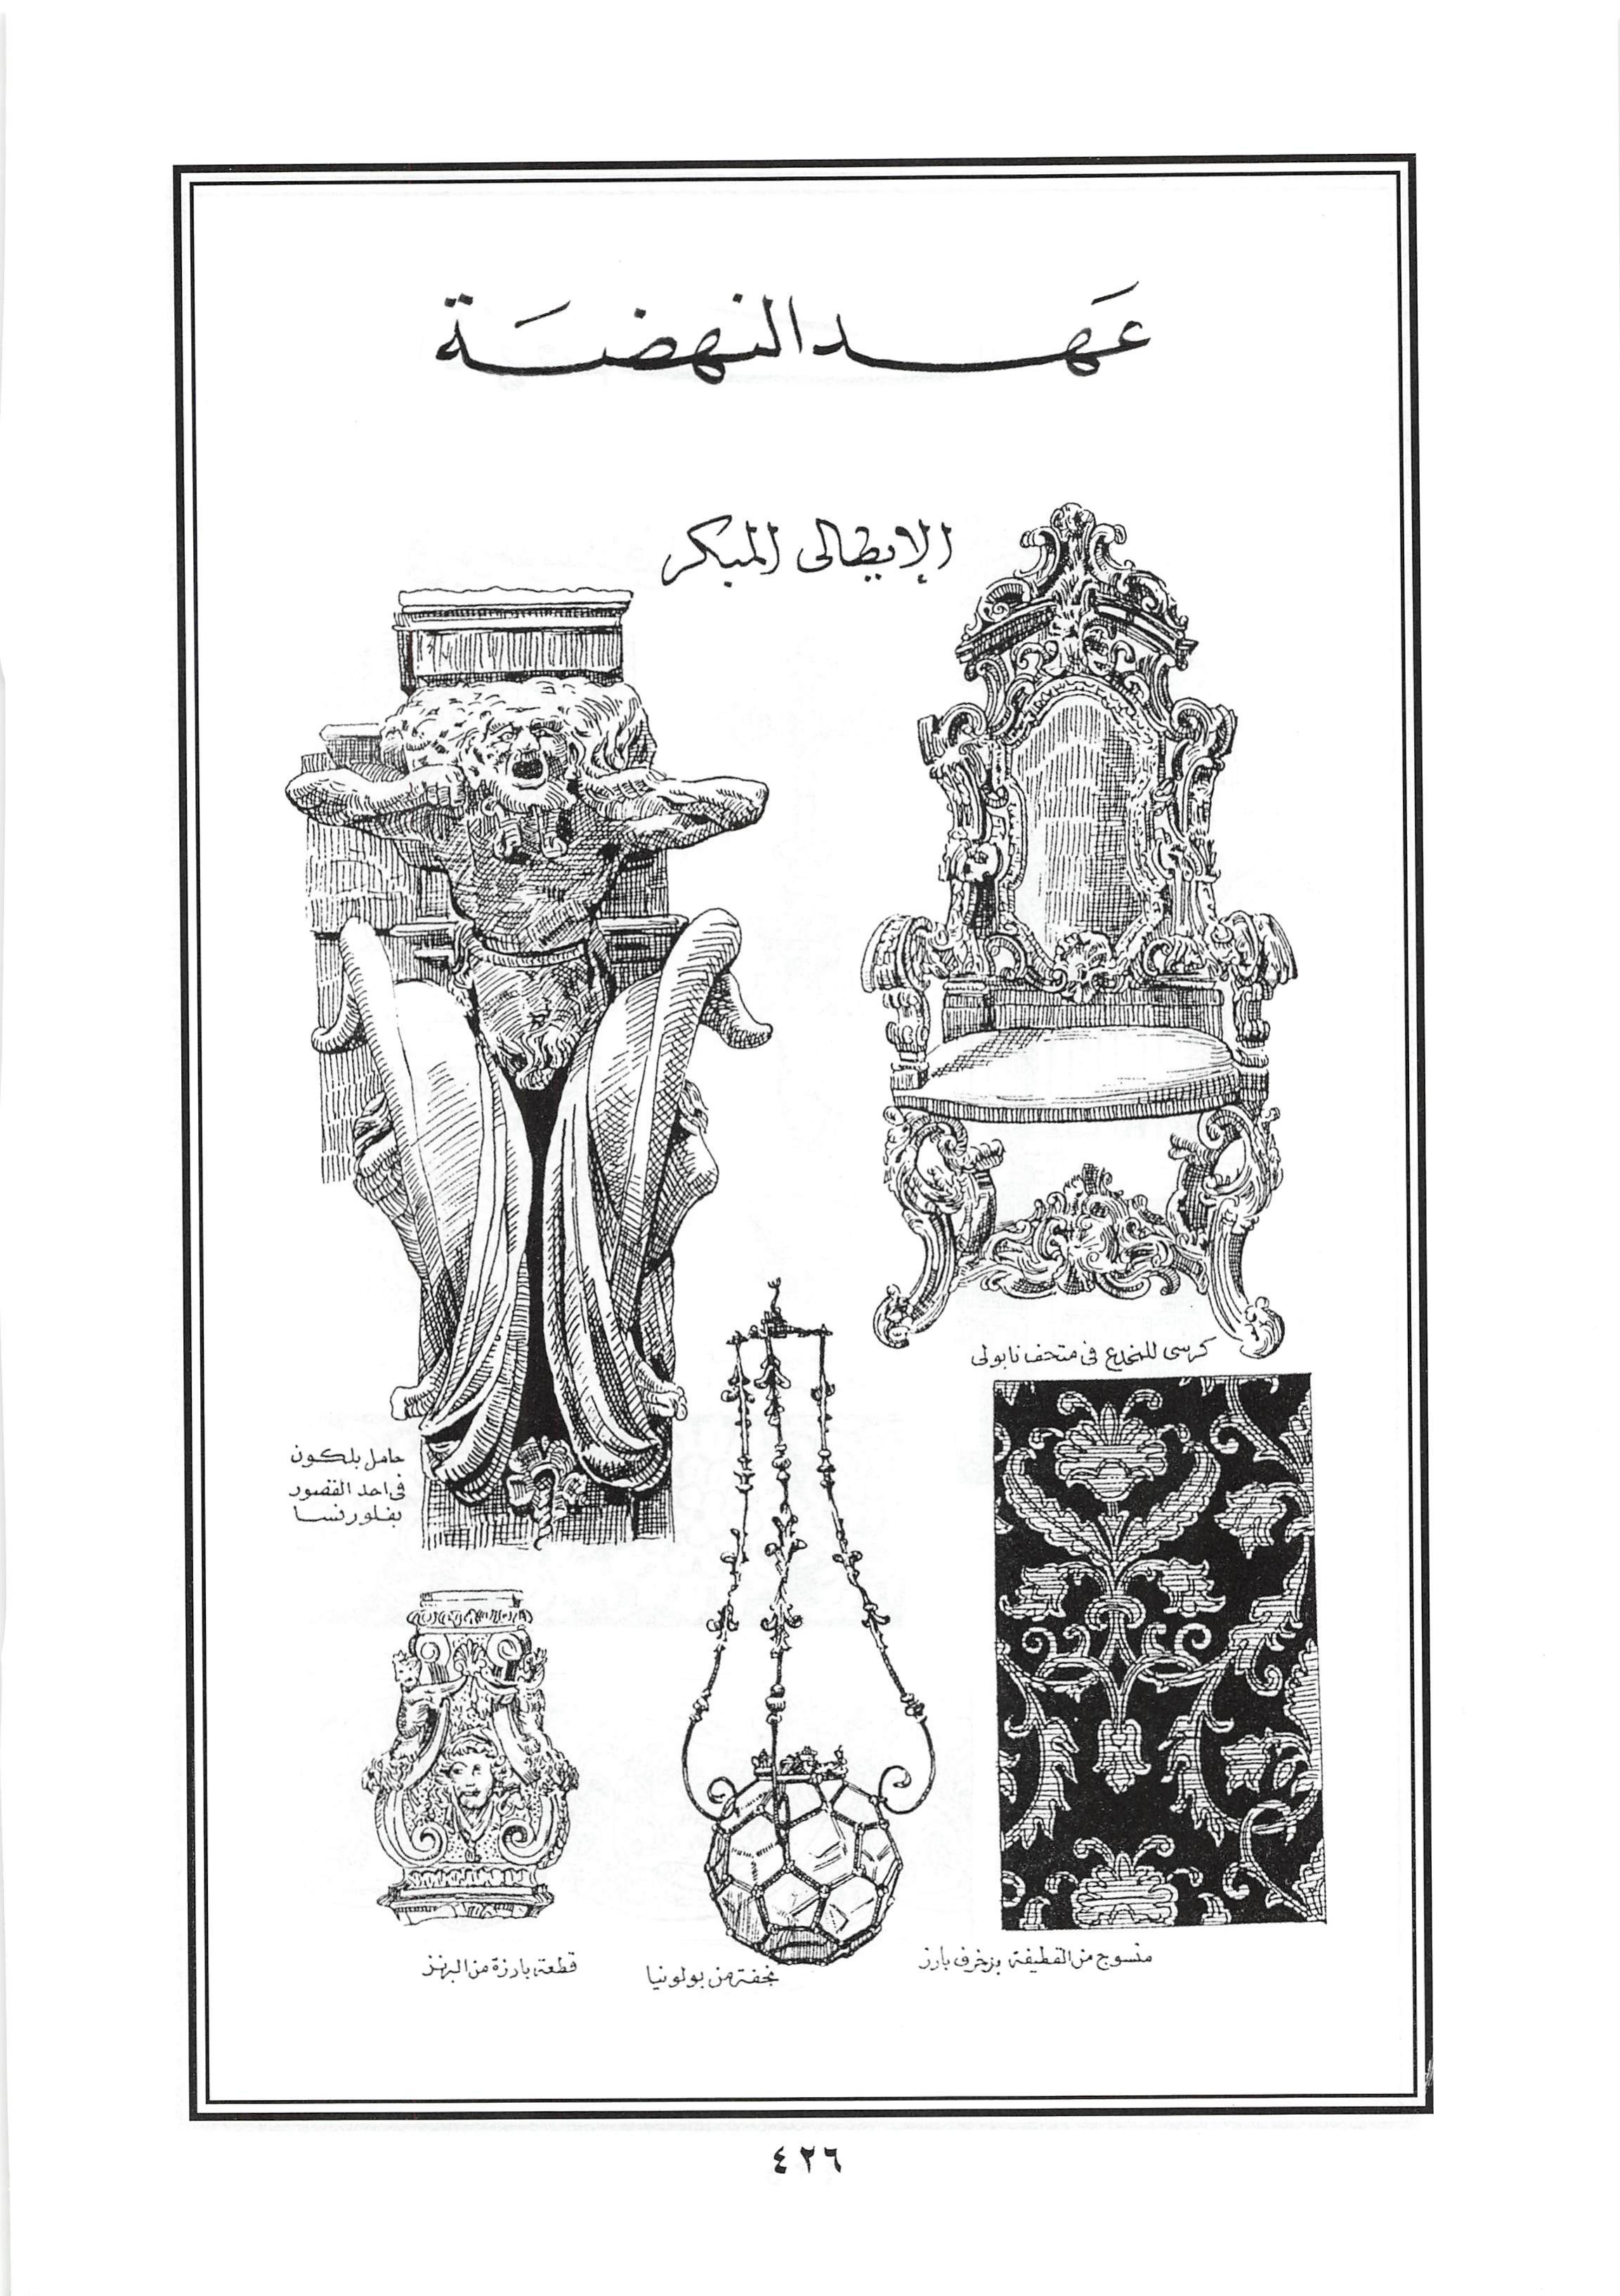 عَهد النهضَة
الإيطالى المبكر
كرسى للمخدع فى متحف نابولى
حامل بلكون
فى احد القصور
بفلورنسا
منسوج من القطيفة بزخرف بارز
نجفة من بولونيا
قطعة بارزة من البرنز
٤٢٦